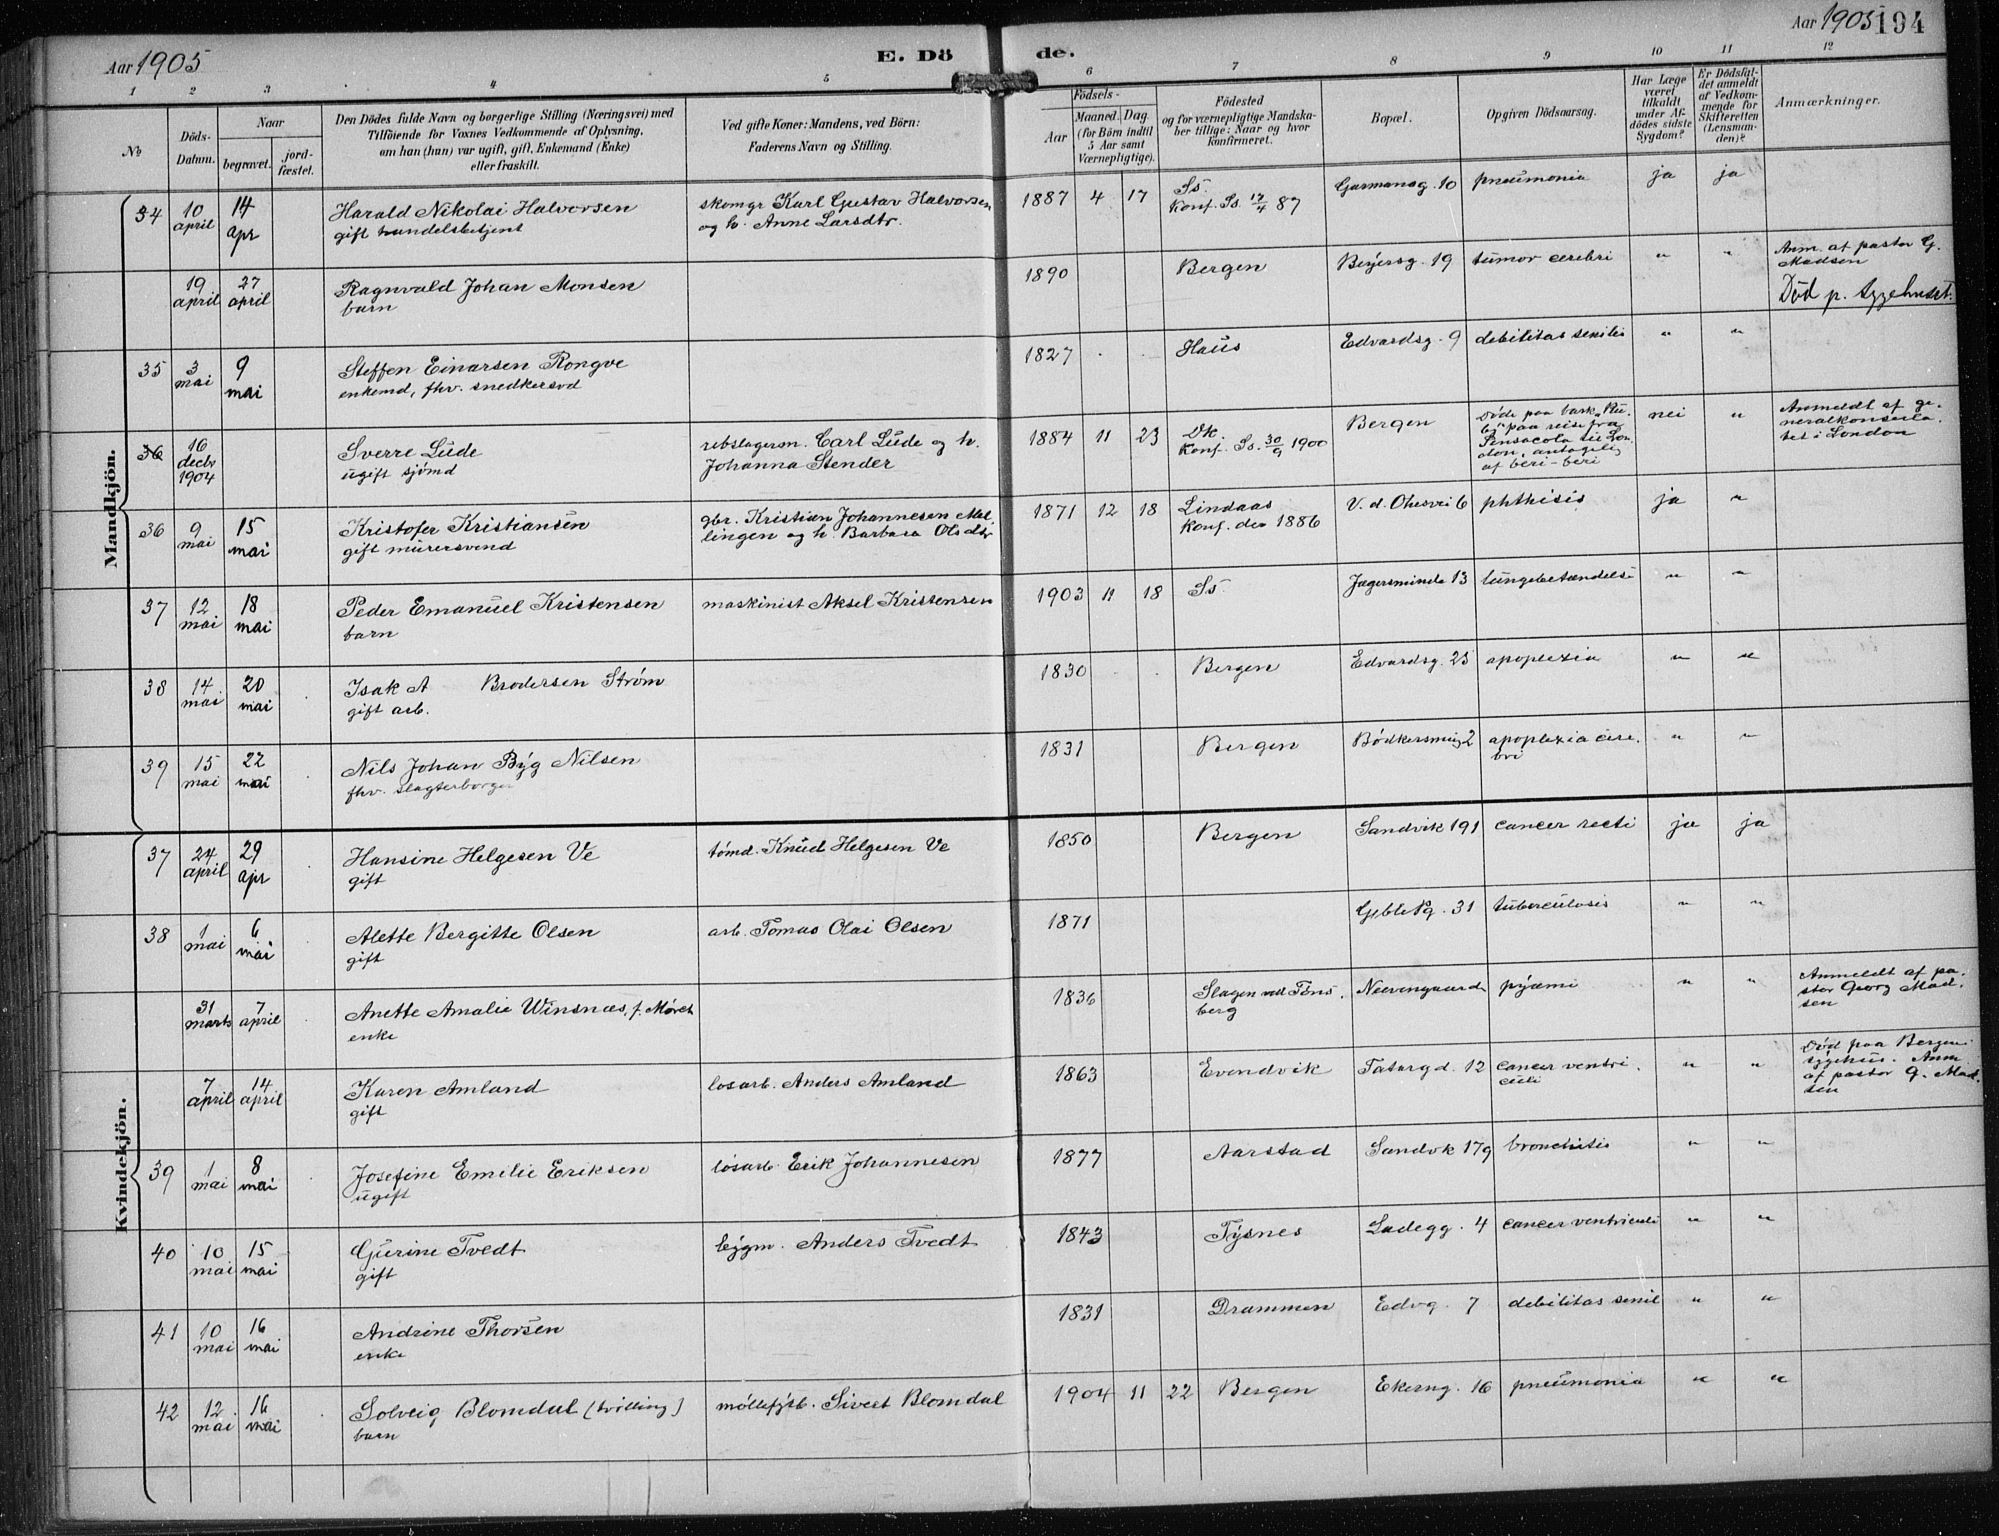 Aar 1905
E. Dö
de.
Aar 1905
194
1 2 3 4 5 6 7 8 9 10 11 12
№
Döds-Datum.
Naar
begravet.
jord-fæstet.
Den Dödes fulde Navn og borgerlige Stilling (Næringsvei) med
Tilföiende for Voxnes Vedkommende af Oplysning,
om han (hun) var ugift, gift, Enkemand (Enke)
eller fraskilt.
Ved gifte Koner: Mandens, ved Börn:
Faderens Navn og Stilling.
Födsels-
Aar
Maaned. Dag.
(for Börn indtil
5 Aar samt
Værnepligtige).
Födested
og for værnepligtige Mandska-
ber tillige: Naar og hvor
konfirmeret.
Bopæl.
Opgiven Dödsaarsag.
Har Læge
været
tilkaldt
under Af-
dödes sidste
Sygdom?
Er Dödsfal-
det anmeldt
af Vedkom-
mende for
Skifteretten
(Lensman-
den)?
Anmærkninger.
Mandkjön.
34 10 april 14 apr Harald Nikolai Halvorsen skomgr Karl Gustav Halvorsen 1887 4 17 Ss. Garmansg. 10 pneumonia ja ja
gift handelsbetjent og h. Anne Larsdtr. Konf. Ss. 17/4 87
19 april 27 april Ragnvald Johan Monsen 1890 Bergen Beyersg. 19 tumor cerebri " " Anm. af pastor G.
barn Madsen
Död p. sygehuset.
35 3 mai 9 mai Steffen Einarsen Rongve 1827 . . Haus Edvardsg. 9 debilitas senilis " "
enkemd, fhv. snedkersvd
36 16 decbr 1904 Sverre Lüde rebslagerm. Carl Lüde og h. 1884 11 23 Dk Bergen Döde paa bark nei " Anmeldt af ge-
ugift sjömd Johanna Stender Konf. Ss. 30/9 1900 paa reise fra neralkonsula-
Pensacola til Lon- tet i London
don, antagelig
af beri-beri
36 9 mai 15 mai Kristofer Kristiansen gbr. Kristian Johannesen Mel- 1871 12 18 Lindaas phthisis ja "
gift murersvend lingen og h. Barbara Olsdtr Konf. der 1886
37 12 mai 18 mai Peder Emanuel Kristensen maskinist Aksel Kristensen 1903 11 18 Ss Jægersminde 13 lungebetændelse " "
barn
38 14 mai 20 mai Isak A Brodersen Strøm 1830 . . Bergen Edvardsg. 25 apoplexia " "
gift arb.
39 15 mai 22 mai Nils Johan Byg Nilsen 1831 Bergen Bödkersmug 2 apoplexia cere- " "
fhv. slagterborger bri
Kvindekjön.
37 24 april 29 apr Hansine Helgesen Ve tömd. Knud Helgesen Ve 1850 Bergen Sandvik 191 cancer recti ja ja
gift
38 1 mai 6 mai Alette Bergitte Olsen arb. Tomas Olai Olsen 1871 31 tuberculosis " "
gift
31 marts 7 april Anette Amalie Winsnæs, f. Mørch 1836 Slagen ved Töns- Neevengaard pyæmi " " Anmeldt af pa-
enke berg stor Georg Mad-
sen
7 april 14 april Karen Amland losarb. Anders Amland 1863 Evendvik Tatargd. 12 cancer ventri- " " Död paa Bergens
gift culi sygehus. Anm
af pastor G. Mad-
sen
39 1 mai 8 mai Josefine Emilie Eriksen løsarb. Erik Johannesen 1877 Aarstad Sandvk 179 bronchitis " "
ugift
40 10 mai 15 mai Gjurine Tvedt bygm. Anders Tvedt 1843 Tysnes Ladegg. 4 cancer ventriculi " "
gift
41 10 mai 16 mai Andrine Thorsen 1831 Drammen Edvg. 7 debilitas senil " "
enke
42 12 mai 16 mai Solveig Blomdal (tvilling) möllefytb. Sivert Blomdal 1904 11 22 Bergen Ekerng. 16 pneumonia " "
barn